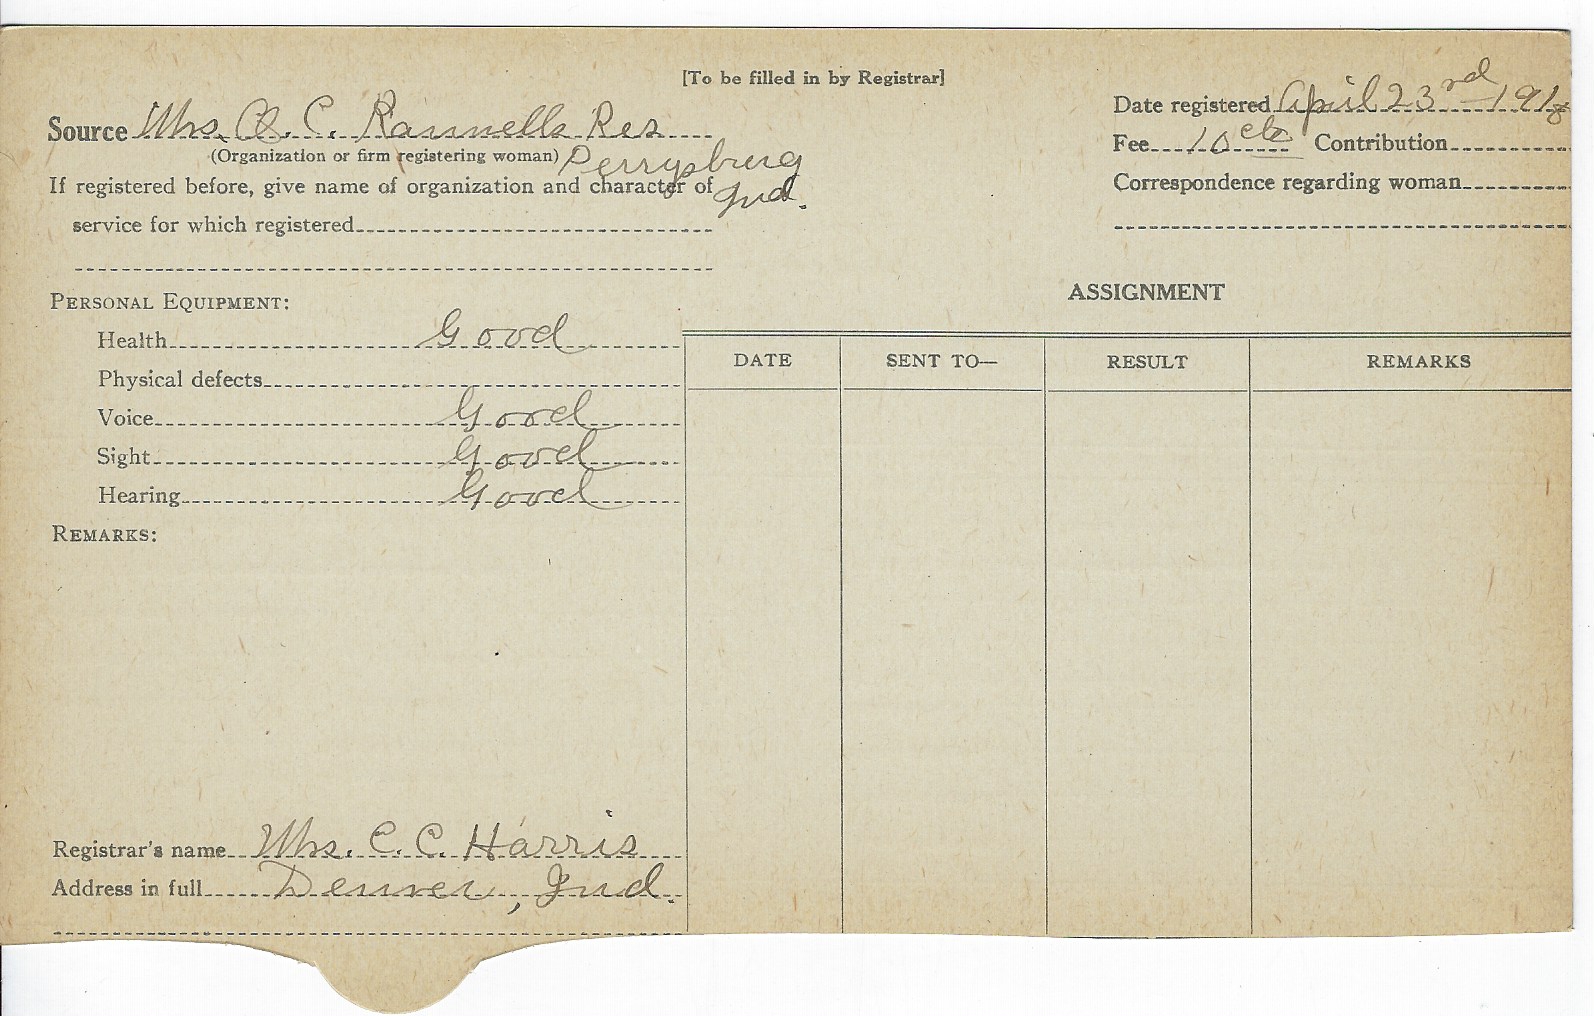 [To be filled in by Registrar]
Source Mrs. C. C. Rannells Res
(Organization or firm registering woman) Perrysburg
Ind.
If registered before, give name of organization and character of
service for which registered
Date registered April 23rd 1918
Fee 10 cts Contribution
Correspondence regarding woman
PERSONAL EQUIPMENT:
Health Good
Physical defects
Voice Good
Sight Good
Hearing Good
REMARKS:
ASSIGNMENT
DATE SENT TO— RESULT REMARKS
Registrar's name Mrs. C. C. Harris
Address in full Denver, Ind.